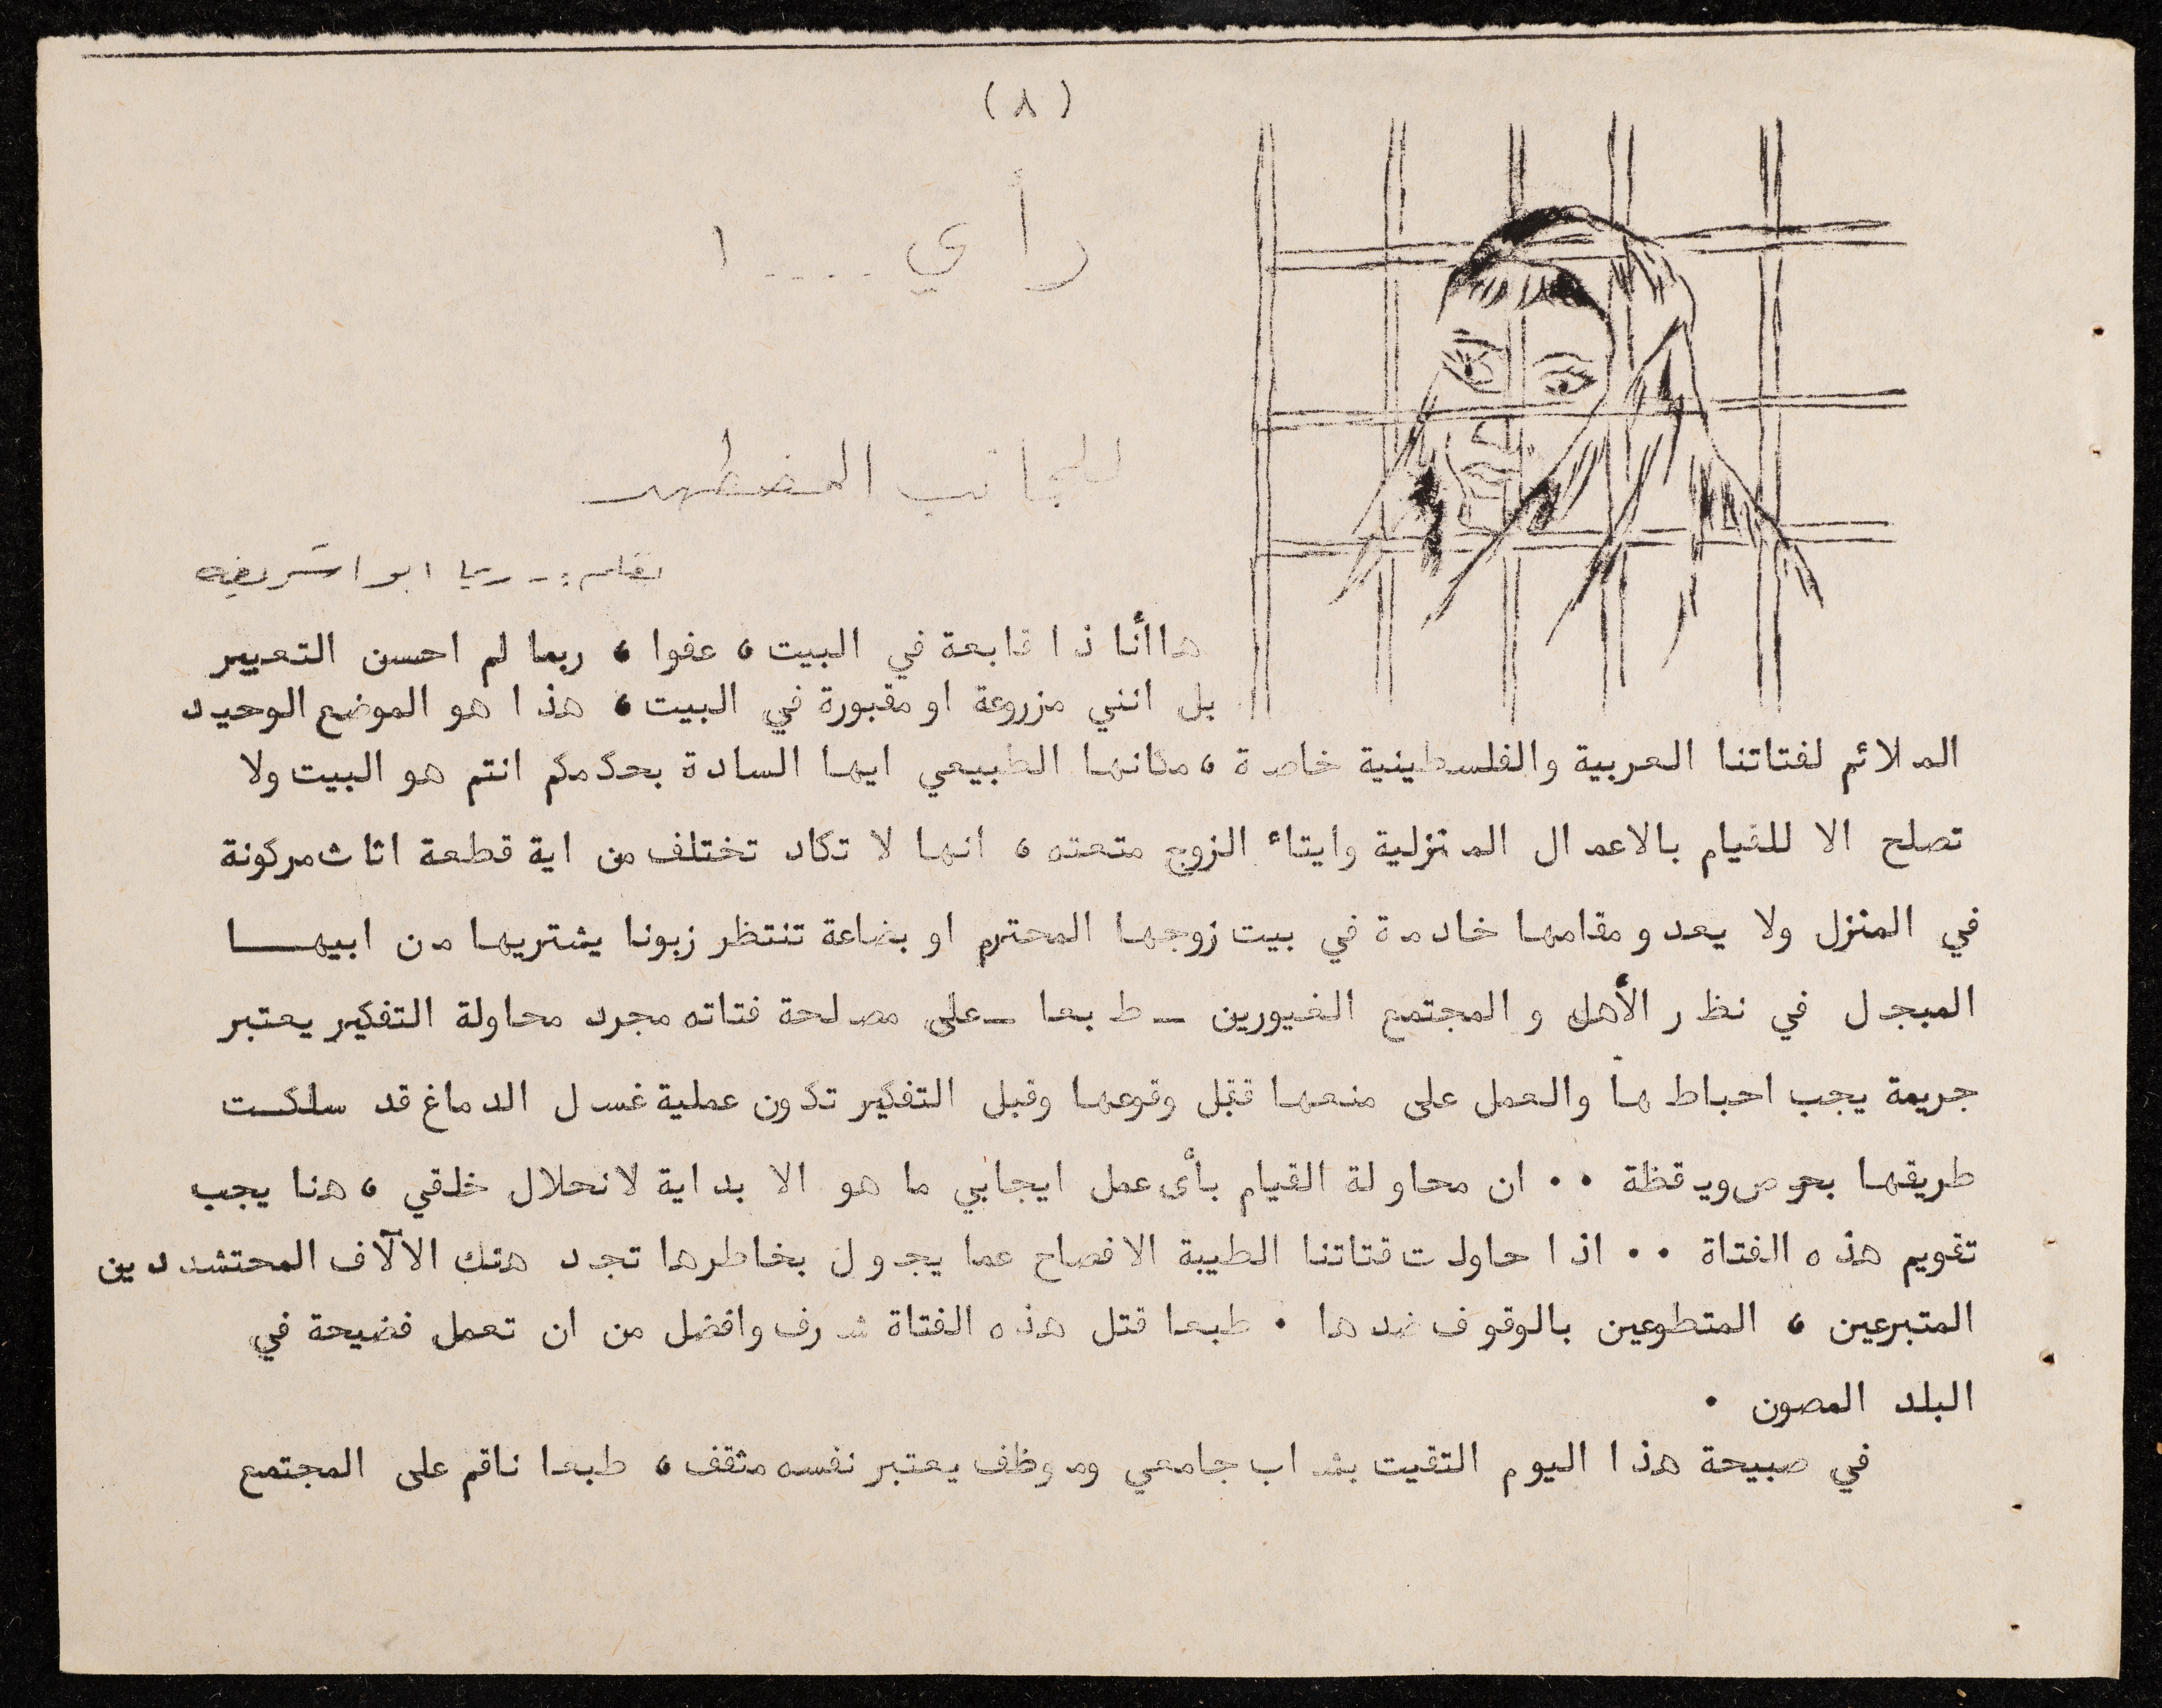 (٨)
رأي ....١
للجانب المضطهد
بقلم :- ريما ابو اشريفه
هاأنا ذا قابعة في البيت، عفوا، ربما لم احسن التعبير
بل انني مزروعة او مقبورة في البيت، هذا هو الموضع الوحيد
الملائم لفتاتنا العربية والفلسطينية خاصة، مكانها الطبيعي ايها السادة بحكمكم انتم هو البيت ولا
تصلح الا للقيام بالاعمال المنزلية وايتاء الزوج متعته، انها لا تكاد تختلف من اية قطعة اثاث مركونة
في المنزل ولا يعدو مقامها خادمة في بيت زوجها المحترم او بضاعة تنتظر زبونا يشتريها من ابيهـــا
المبجل في نظر الأهل و المجتمع الغيورين - طبعا - على مصلحة فتاته مجرد محاولة التفكير يعتبر
جريمة يجب احباطها والعمل على منعها قبل وقوعها وقبل التفكير تكون عملية غسل الدماغ قد سلكـت
طريقها بحرص ويقظة .. ان محاولة القيام بأى عمل ايجابي ما هو الا بداية لانحلال خلقي، هنا يجب
تقويم هذه الفتاة .. اذا حاولت فتاتنا الطيبة الافصاح عما يجول بخاطرها تجد هنك الالآف المحتشددين
المتبرعين، المتطوعين بالوقوف ضدها . طبعا قتل هذه الفتاة شرف وافضل من ان تعمل فضيحة في
البلد المصون .
في صبيحة هذا اليوم التقيت بشاب جامعي وموظف يعتبر نفسه مثقف، طبعا ناقم على المجتمع